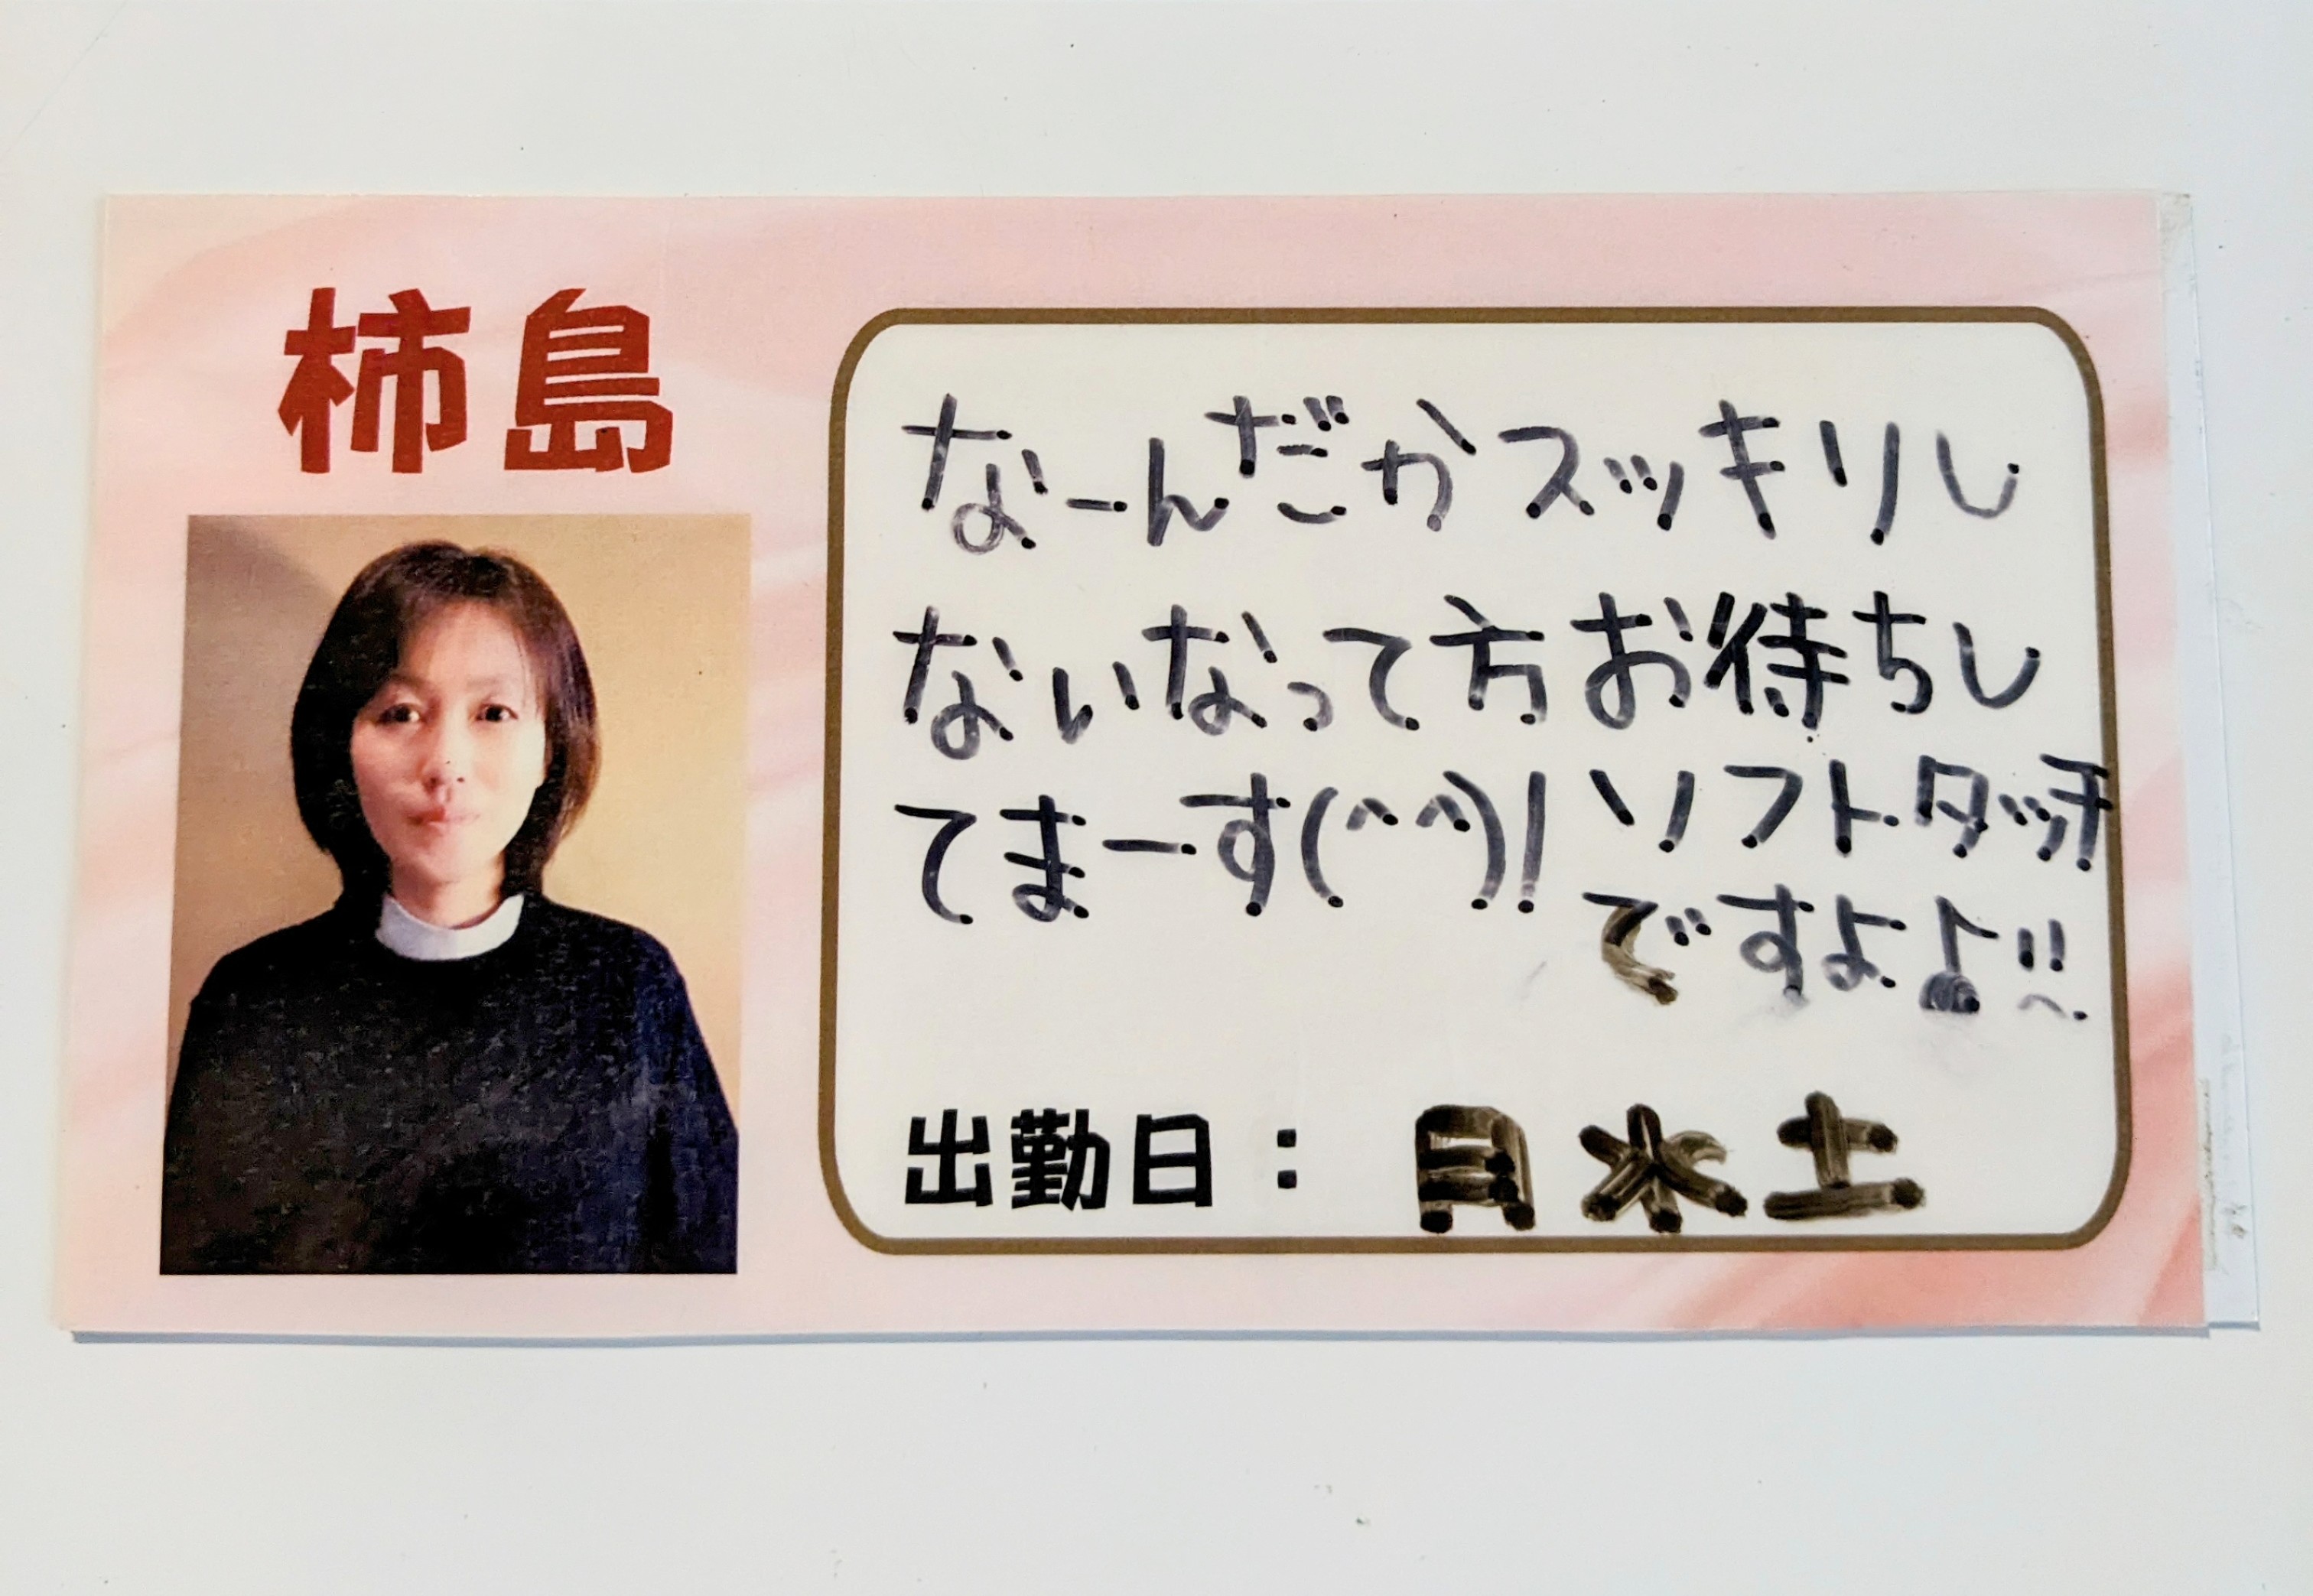 柿島
なーんだかスッキリし
ないなって方お待ちし
てまーす(^^)!
ソフトタッチ
ですよよ!!
出勤日： 月 水 土